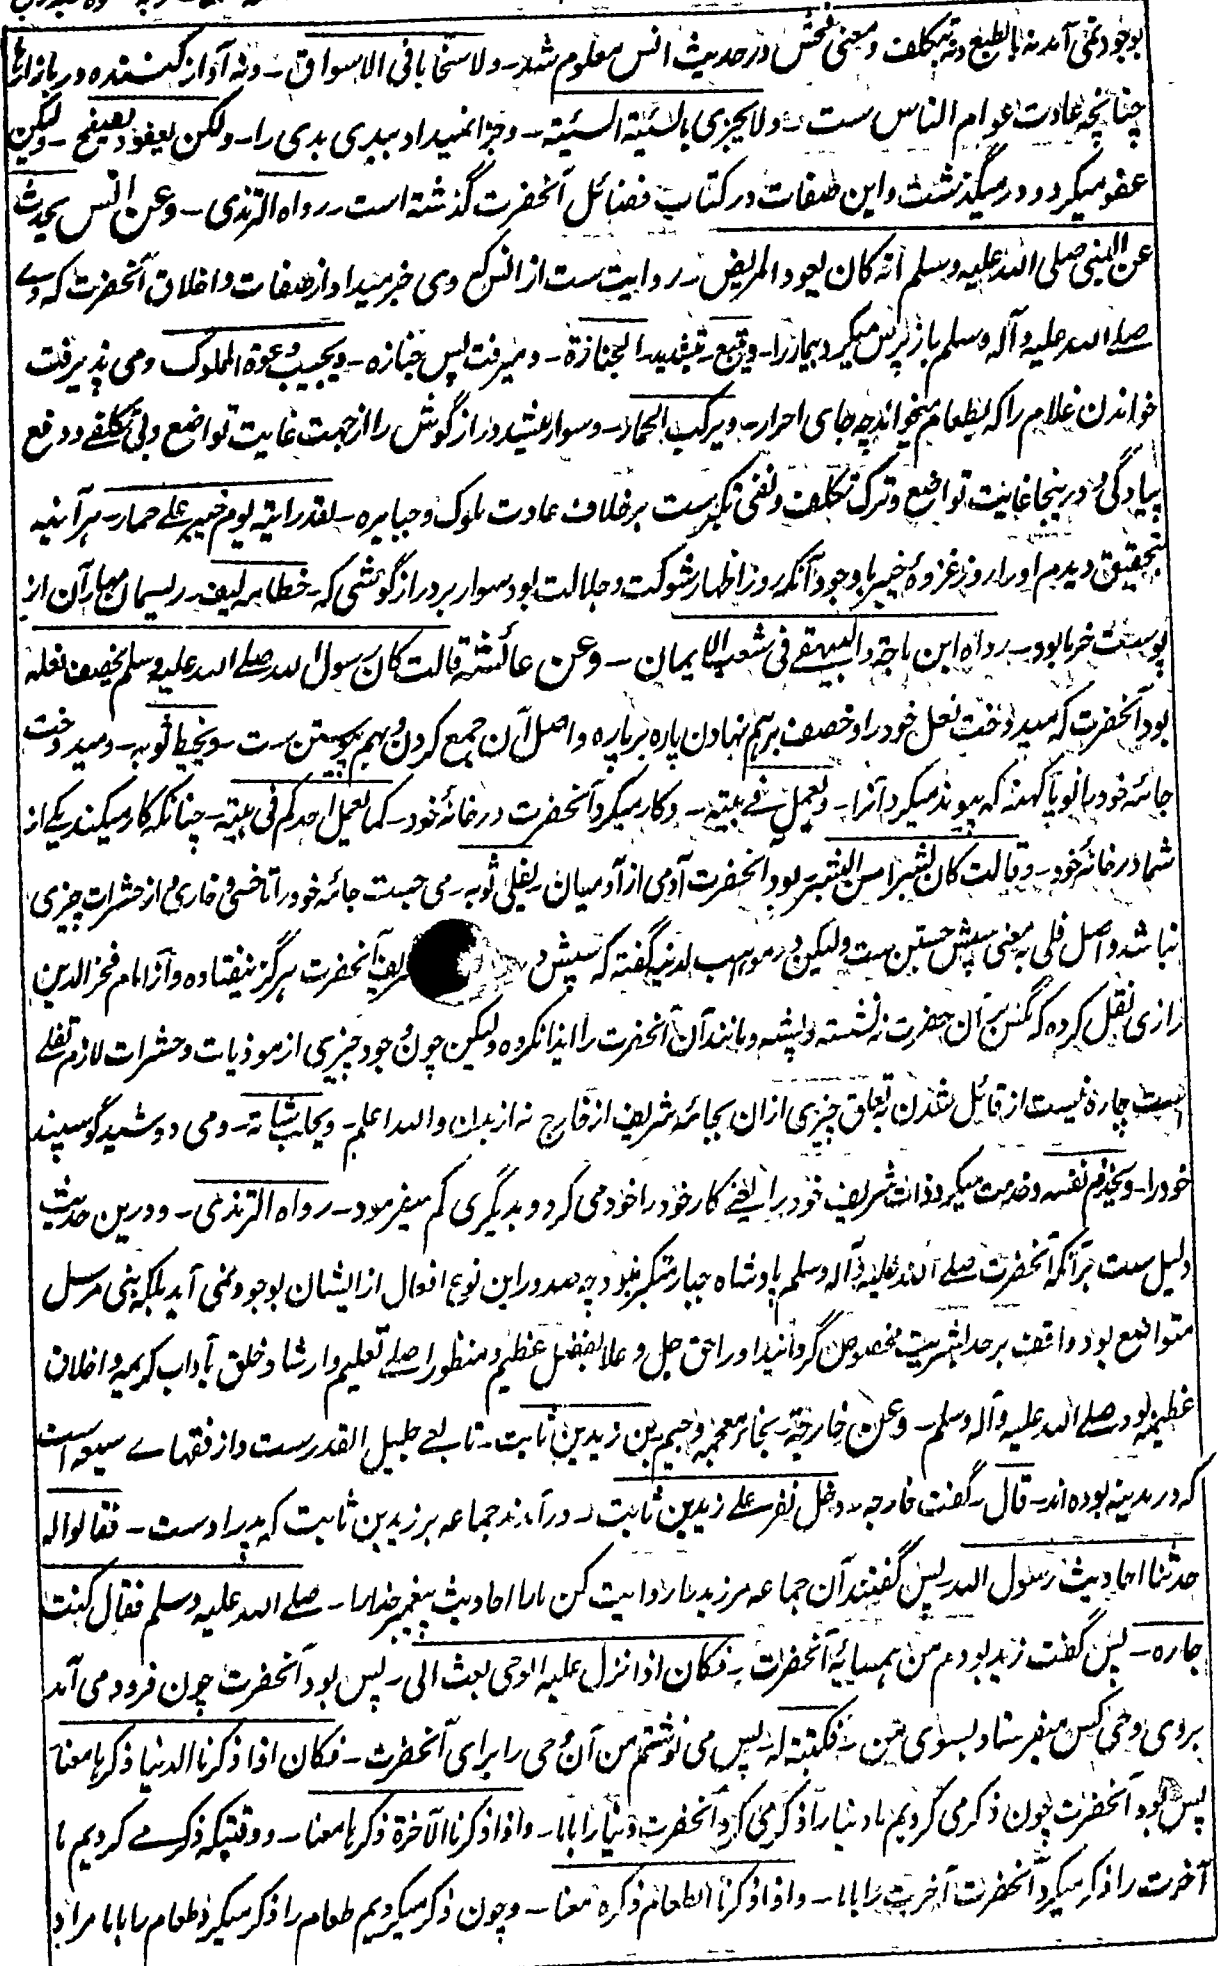 بوجود نمی آمد نه بالطبع و نه بتکلف و معنی فحش در حدیث انس معلوم شد ـ ولا سخابا فی الاسواق ـ و نه آواز کننده در بازارها
چنانچه عادت عوام الناس ست ـ ولا یجزی بالسیئة السیئة ـ و جزا نمیداد ببدی بدی را ـ ولکن یعفو و یصفح ـ ولیکن
عفو میکرد و در میگذشت و این صفات در کتاب فضائل آنحضرت گذشته است ـ رواه الترمذی ـ وعن انس یحدث
عن النبی صلی الله علیه وسلم انه کان یعود المریض ـ روایت ست از انس که وی خبر میداد از صفات و اخلاق آنحضرت که وے
صلے الله علیه وآله وسلم باز پرس میکرد بیمار را ـ ویتبع ـ بتشدید ـ الجنازة ـ و میرفت پس جنازه ـ ویجیب دعوة المملوک و می پذیرفت
خواندن غلام را که بطعام میخواند چه جای احرار ـ ویرکب الحمار ـ و سوار میشد دراز گوش را از جهت غایت تواضع و بی تکلفے و دفع
پیادگی و درینجا غایت تواضع و ترک تکلف و نفی تکبر ست بر خلاف عادت ملوک و جبابره ـ لقد رایته یوم خیبر علے حمار ـ هر آئینه
بتحقیق دیدم او را روز غزوهٔ خیبر با وجود آنکه روز اظهار شوکت و جلالت بود سوار بر دراز گوشی که ـ خطامه لیف ـ ریسمان مهار آن از
پوست خرما بود ـ رواه ابن ماجة والبیهقے فی شعب الایمان ـ وعن عائشة قالت کان رسول الله صلے الله علیه وسلم یخصف نعله
بود آنحضرت که میدوخت نعل خود را و خصف بر هم نهادن پاره بر پاره و اصل آن جمع کردن و بهم پیوستن ست ـ ویخیط ثوبه ـ و میدوخت
جامه خود را نو یا کهنه که پیوند میکرد آنرا ـ ویعمل فے بیته ـ و کار میکرد آنحضرت در خانهٔ خود ـ کما یعمل احدکم فی بیته ـ چنانکه کار میکند یکے از
شما در خانهٔ خود ـ وقالت کان بشرا من البشر بود آنحضرت آدمی از آدمیان ـ یفلی ثوبه ـ می جست جامه خود را تا خسی و خاری و از حشرات چیزی
نباشد و اصل فلی به معنی سپش جستن ست ولیکن در مواهب لدنیه گفته که سپش در آنحضرت هرگز نیفتاده و از امام فخر الدین
رازی نقل کرده که مگس بر آن حضرت نه نشسته و پشه و مانند آن آنحضرت را ایذا نکرده ولیکن چون وجود چیزی از موذیات و حشرات لازم تفلے
است چاره نیست از قائل شدن به تعلق چیزی از ان بجامهٔ شریف از خارج نه از بدن والله اعلم ـ ویحلب شاته ـ و می دوشید گوسپند
خود را ـ ویخدم نفسه و خدمت میکرد ذات شریف خود را یعنے کار خود را خود می کرد و بدیگری کم میفرمود ـ رواه الترمذی ـ و درین حدیث
دلیل ست بر آنکه آنحضرت صلے الله علیه وآله وسلم پادشاه جبار متکبر نبود چه صدور این نوع افعال از ایشان بوجود نمی آید بلکه نبی مرسل
متواضع بود واقف بر حد بشریت مخصوص گردانید او را حق جل و علا بفضل عظیم و منظور اصلے تعلیم و ارشاد خلق بآداب کریمه و اخلاق
عظیمه بود صلے الله علیه وآله وسلم ـ وعن خارجة ـ بخاء معجمه و جیم ـ بن زید بن ثابت ـ تابعے جلیل القدر ست و از فقهاے سبعه است
که در مدینه بوده اند ـ قال ـ گفت خارجه ـ دخل نفر علے زید بن ثابت ـ در آمدند جماعه بر زید بن ثابت که پدر اوست ـ فقالوا له
حدثنا احادیث رسول الله پس گفتند آن جماعه مر زید را روایت کن ما را احادیث پیغمبر خدا را ـ صلے الله علیه وسلم فقال کنت
جاره ـ پس گفت زید بودم من همسایهٔ آنحضرت ـ فکان اذا نزل علیه الوحی بعث الی ـ پس بود آنحضرت چون فرود می آمد
بر وی وحی کس میفرستاد بسوی من ـ فکتبته له ـ پس می نوشتم من آن وحی را برای آنحضرت ـ فکان اذا ذکرنا الدنیا ذکرها معنا
پس بود آنحضرت چون ذکر می کردیم ما دنیا را ذکر می کرد آنحضرت دنیا را با ما ـ واذا ذکرنا الآخرة ذکرها معنا ـ و وقتیکه ذکر مے کردیم ما
آخرت را ذکر میکرد آنحضرت آخرت را با ما ـ واذا ذکرنا الطعام ذکره معنا ـ و چون ذکر میکردیم طعام را ذکر میکرد طعام را با ما مراد